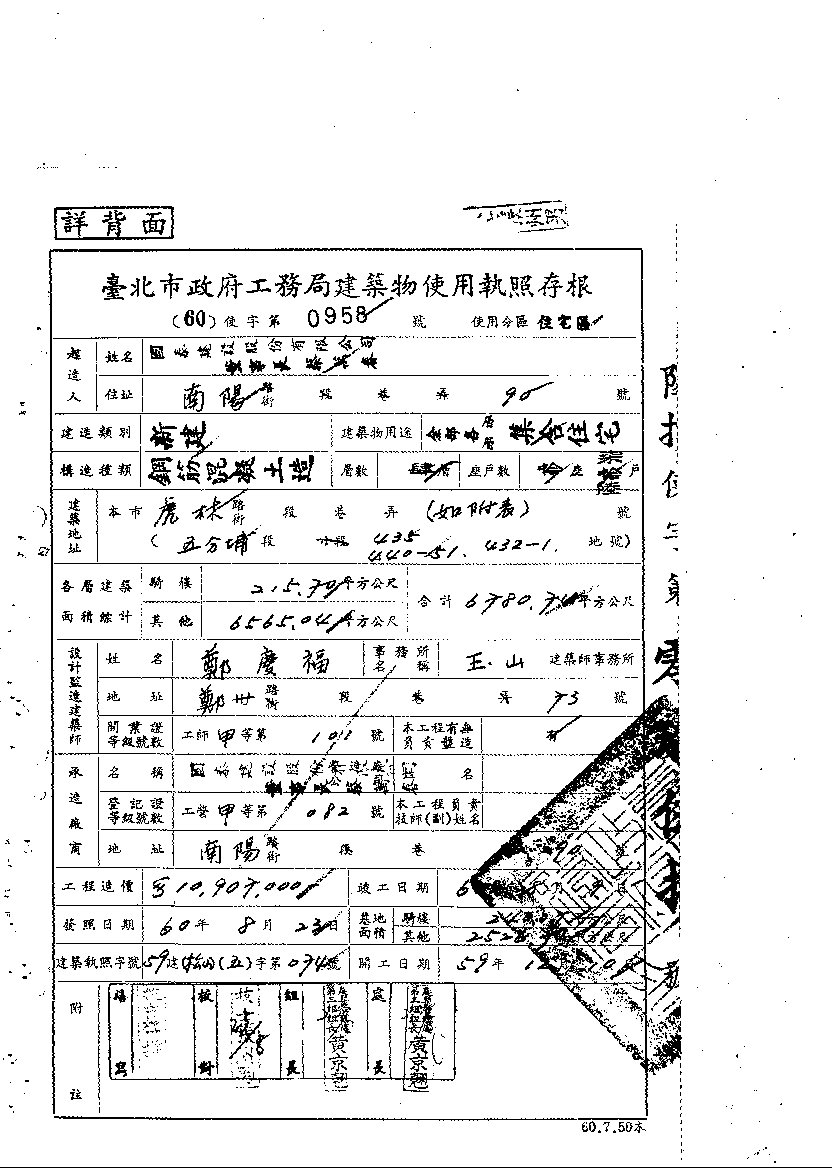 詳背面
臺北市政府工務局建築物使用執照存根
(60)使字第 0958 號 使用分區 住宅區
起造人 姓名 國泰建設股份有限公司
董事長 蔡萬春
住址 南陽 路街 段 巷 弄 90 號
建造類別 新建 建築物用途 全部各層 集合住宅
構造種類 鋼筋混凝土造 層數 座戶數 座 戶
建築地址 本市 虎林 路街 段 巷 弄 (如附表) 號
( 五分埔 段 小段 435 440-51. 432-1. 地號)
各層建築面積總計 騎樓 215.70 平方公尺 合計 6780.74 平方公尺
其他 6565.04 平方公尺
設計監造建築師 姓名 鄭慶福 事務所名稱 玉山 建築師事務所
地址 鄭州 路街 段 巷 弄 73 號
開業證等級號數 工師 甲 等第 101 號 本工程有無負責監造 有
承造廠商 名稱 國泰建設股份 姓名
登記證等級號數 工營 甲 等第 082 號 本工程負責技師(副)姓名
地址 南陽 路街 段 巷 90 號
工程造價 10,907,000 竣工日期
發照日期 60年 8月 23日 基地面積 騎樓
其他
建築執照字號 59建(松山)(五)字第 074號 開工日期 59年 12月 10
附註 填寫 校對 組長 黃京翹 處長 黃京翹
60.7.50本